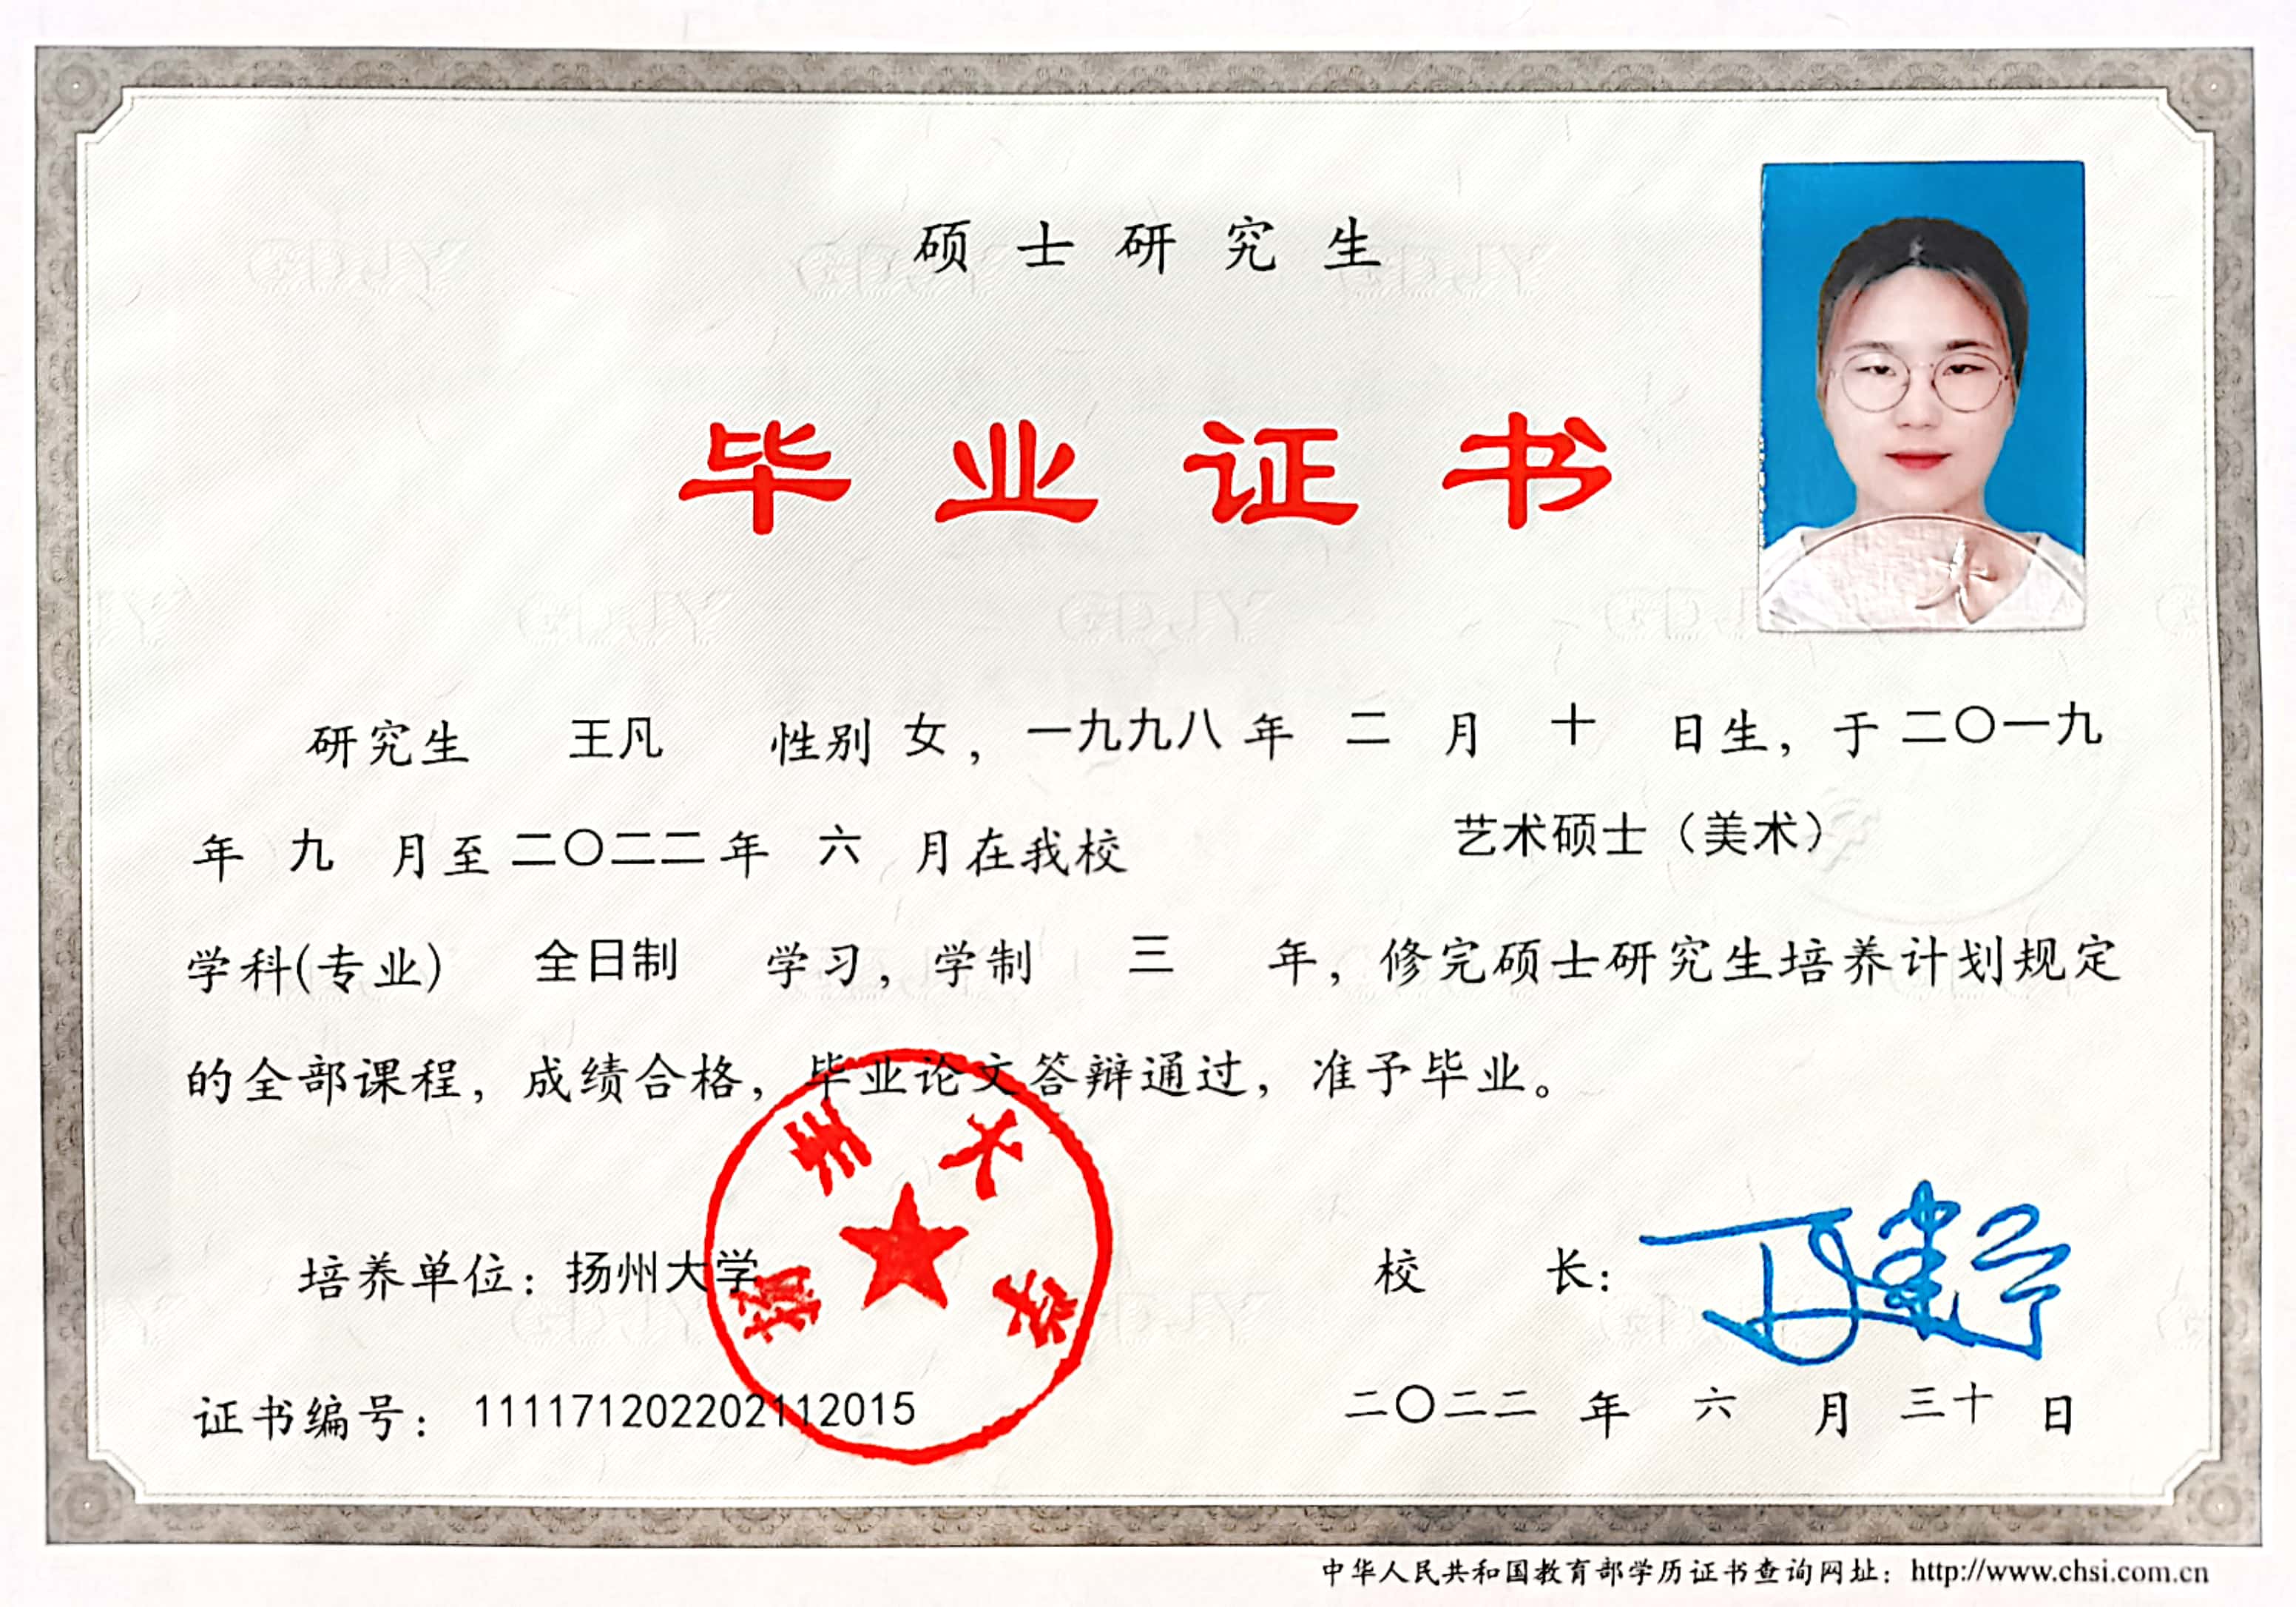 硕士研究生
毕业证书
研究生 王凡 性别 女，一九九八 年 二 月 十 日生，于 二〇一九
年 九 月至 二〇二二 年 六 月在我校 艺术硕士（美术）
学科(专业) 全日制 学习，学制 三 年，修完硕士研究生培养计划规定
的全部课程，成绩合格，毕业论文答辩通过，准予毕业。
扬州大学
培养单位：扬州大学 校 长：
证书编号： 111171202202112015 二〇二二 年 六 月 三十 日
中华人民共和国教育部学历证书查询网址：http://www.chsi.com.cn